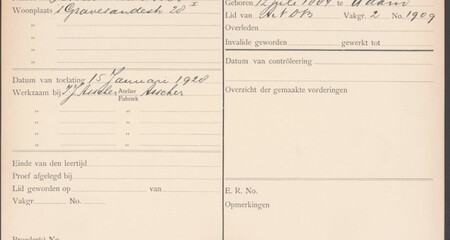 Woonplaats 's Gravesandestr 28 I
Datum van toelating 15 Januari 1928
Werkzaam bij J.J. Asscher Atelier Fabriek Asscher
" "
" "
" "
Einde van den leertijd
Proef afgelegd bij
Lid geworden op van
Vakgr. No.
Geboren 12 Juli te A'dam
Lid van ANDB Vakgr. 2 No. 1909
Overleden
Invalide geworden gewerkt tot
Datum van contrôleering
Overzicht der gemaakte vorderingen
E. R. No.
Opmerkingen